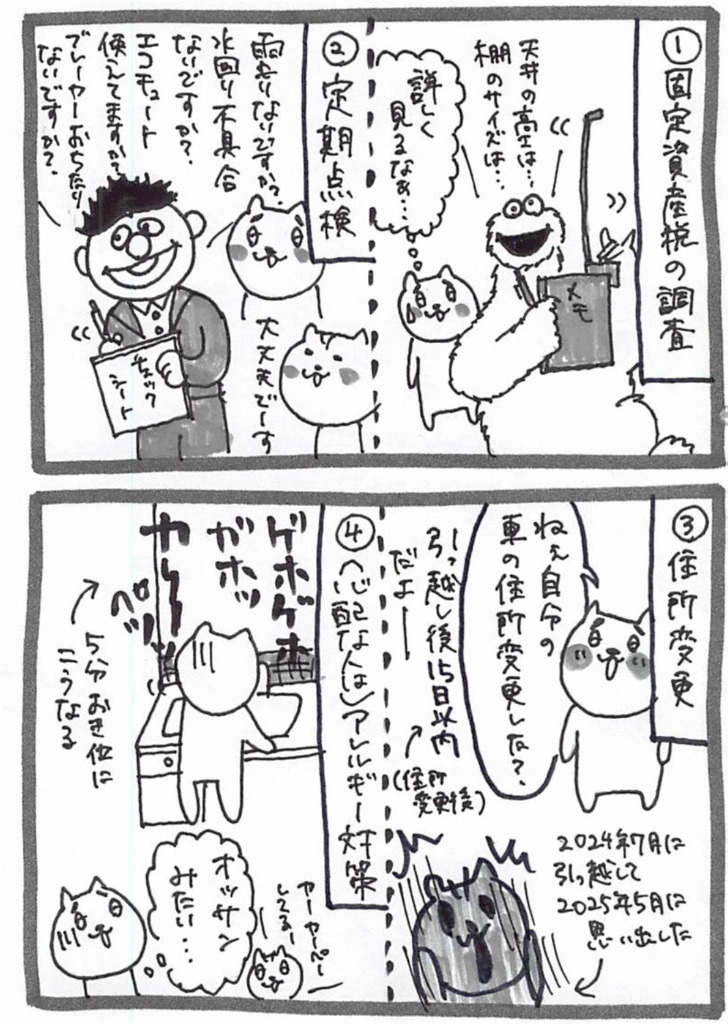 ①固定資産税の調査
天井の高さは…
棚のサイズは…
詳しく
見るなぁ…
メモ
②定期点検
雨もりないですか?
水回り不具合
ないですか?
エコキュート
使えてますか?
ブレーカーおちたり
ないですか?
チェック
シート
大丈夫でーす
③住所変更
ねぇ自分の
車の住所変更した?
引っ越し後15日以内
だよ
(住所
変更後)
2024年7月に
引っ越して
2025年5月に
思い出した
④(心配な人は)アレルギー対策
ゲホゲホ
ガホッ
カーーッ
ペッ
5分おき位に
こうなる
カーカーペー
してるー
オッサン
みたい…